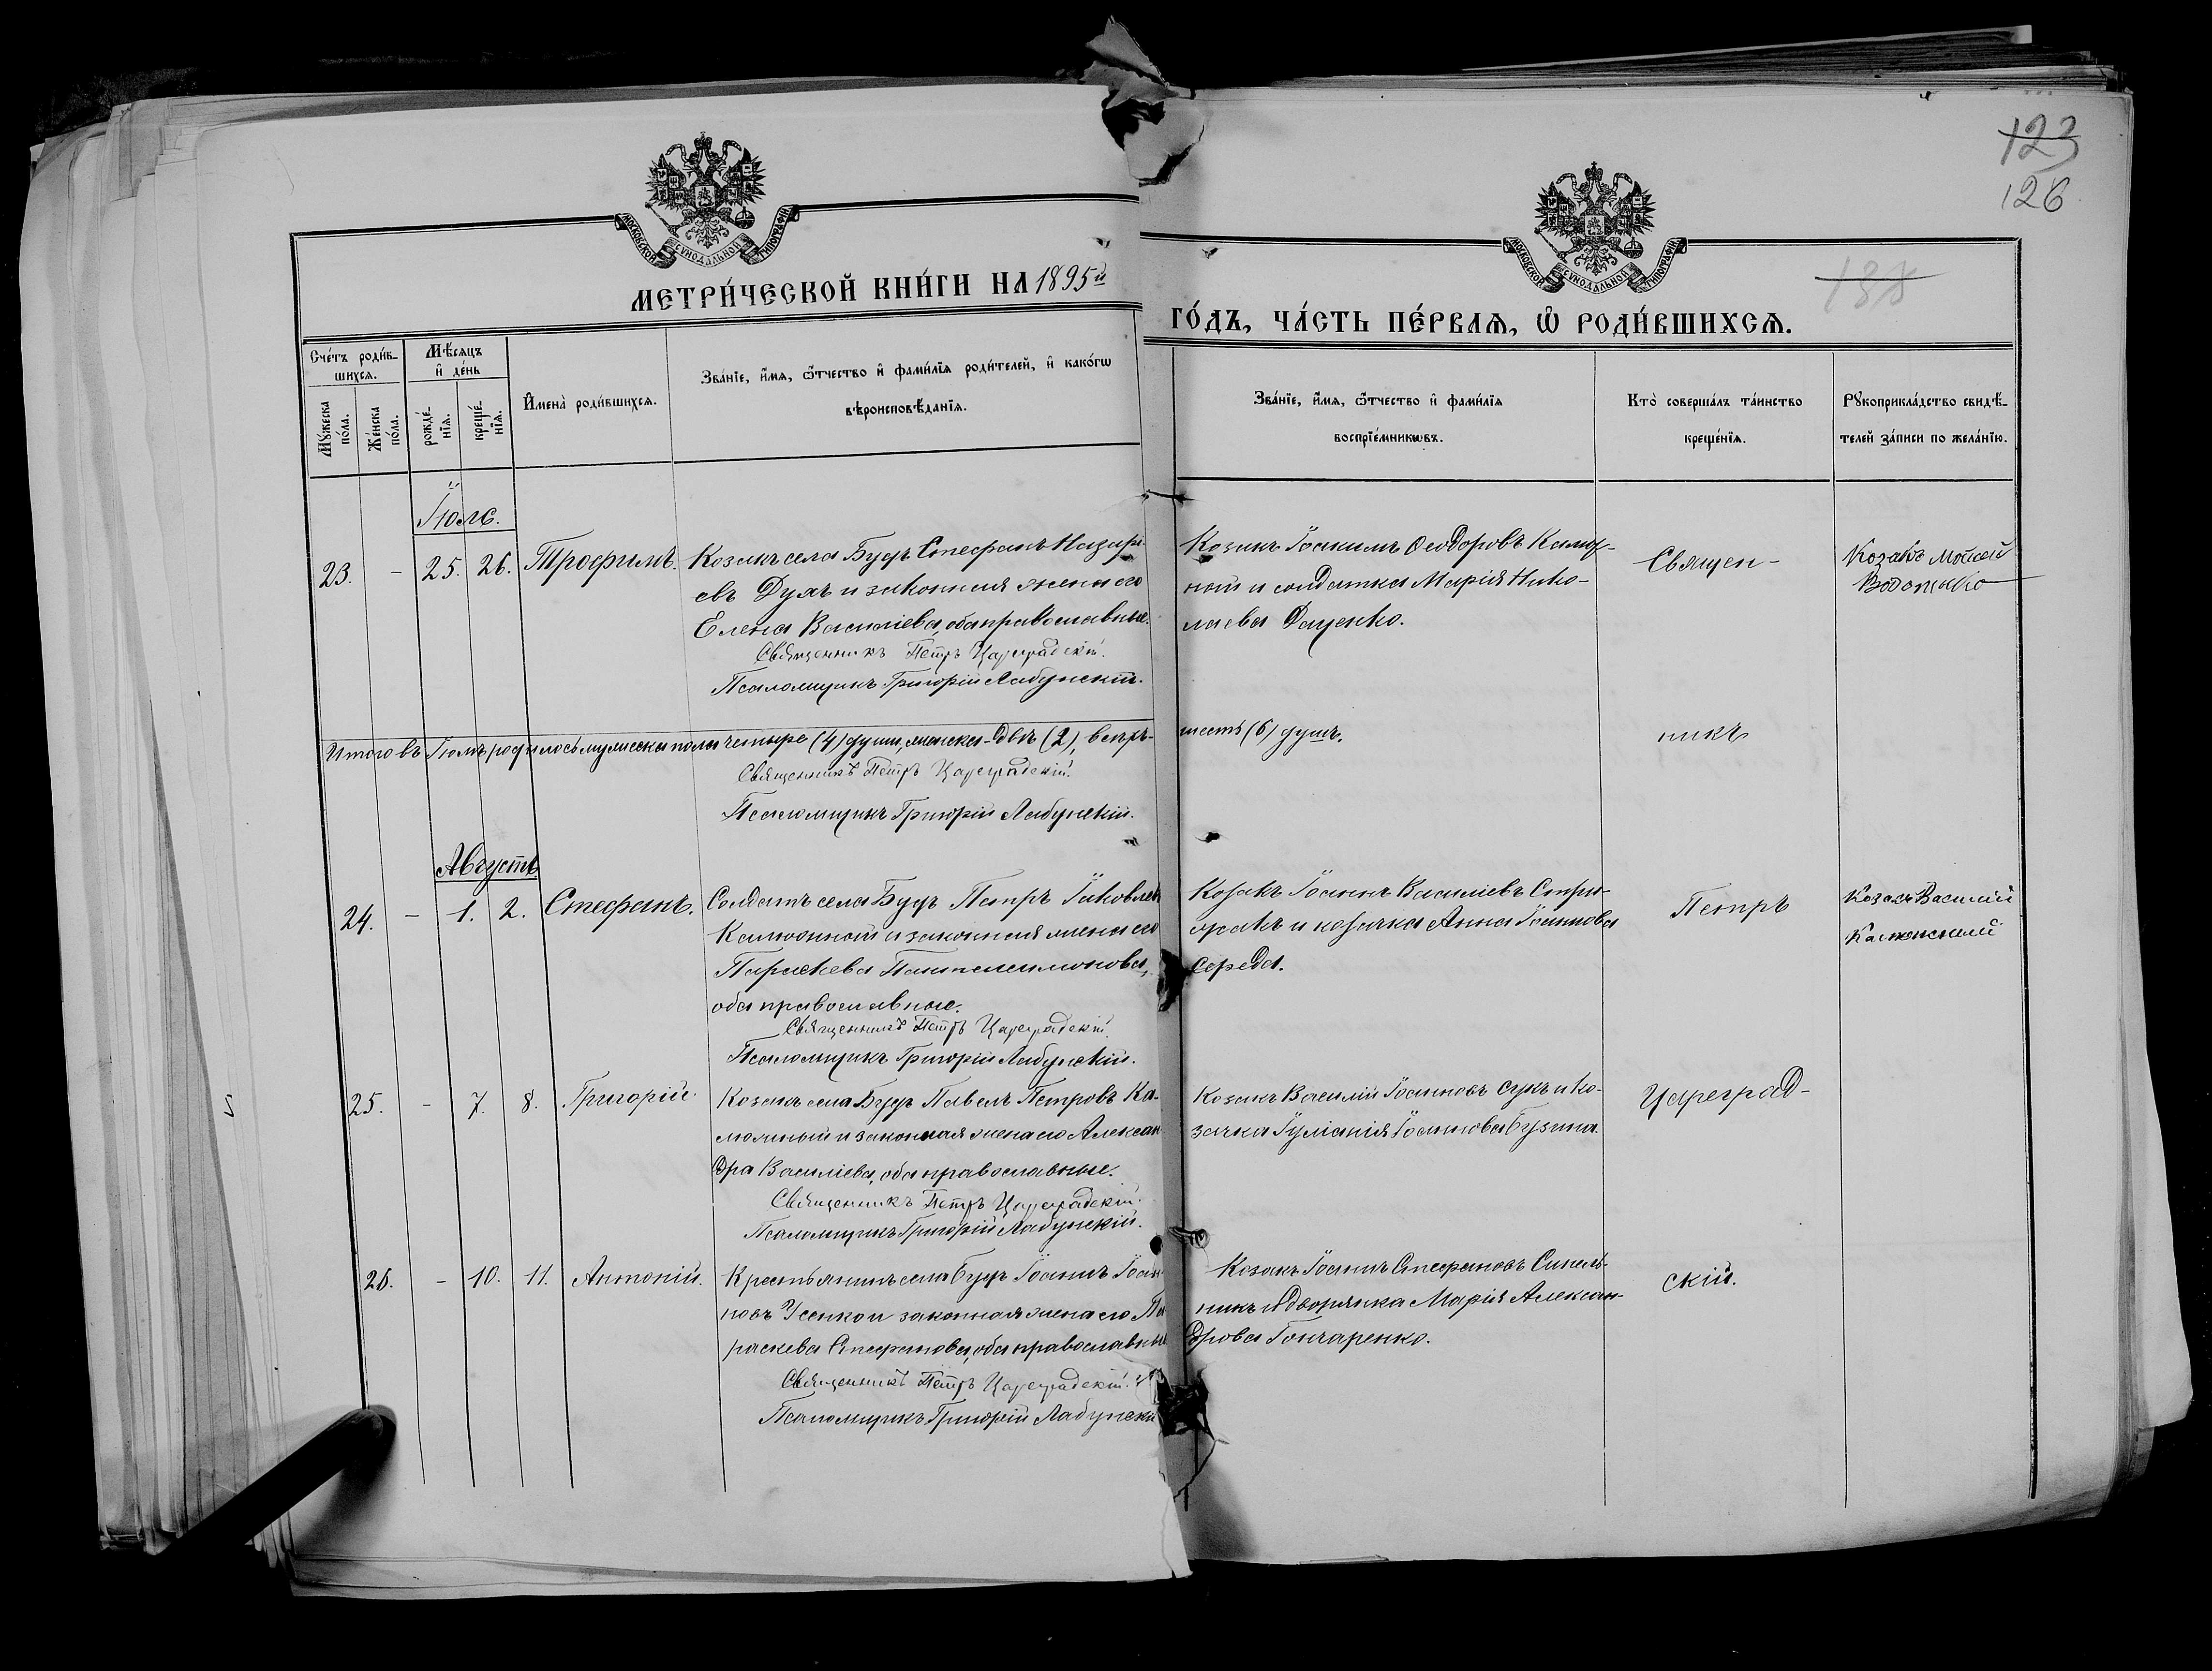 123
126
138
МОСКОВСКОЙ СУНОДАЛЬНОЙ ТИПОГРАФІИ
МОСКОВСКОЙ СУНОДАЛЬНОЙ ТИПОГРАФІИ
МЕТРИ́ЧЕСКОЙ КНИ́ГИ НА 1895й
ГО́ДЪ, ЧА́СТЬ ПЕ́РВАѦ, Ѽ РОДИ́ВШИХСѦ.
Сче́тъ роди́в-
шихсѧ.
Мꙋ́жеска по́ла.
Же́нска по́ла.
Мѣ́сѧцъ
и҆ де́нь
рожде́-нїѧ.
креще́-нїѧ.
И҆мена̀ роди́вшихсѧ.
Зва́нїе, и҆́мѧ, ѻ҆́тчество и҆ фами́лїѧ роди́телей, и҆ како́гѡ
вѣроисповѣ́данїѧ.
Зва́нїе, и҆́мѧ, ѻ҆́тчество и҆ фами́лїѧ
воспрїе́мникѡвъ.
Кто̀ соверша́лъ та́инство
креще́нїѧ.
Рꙋкоприкла́дство свидѣ́-
телей за́писи по жела́нїю.
Іюль.
23. - 25. 26. Трофимъ. Козакъ села Будъ Стефанъ Назарі-
евъ Духъ и законная жена его
Елена Василіева, оба православные.
Священникъ Петръ Цареградскій.
Псаломщикъ Григорій Лабунскій.
Козакъ Іоакимъ Ѳеодоровъ Калюж-
ный и солдатка Марія Нико-
лаева Даценко.
Священ-
Козакъ Мойсей
Итого въ Іюлѣ родилось мужеска пола четыре (4) души, женска - двѣ (2), всего -
шесть (6) душъ.
никъ
Священникъ Петръ Цареградскій.
Псаломщикъ Григорій Лабунскій.
Августъ
24. - 1. 2. Стефанъ. Солдатъ села Будъ Петръ Іаковлев
Калюжный и законная жена его
Параскева Пантелеимонова,
оба православные.
Священникъ Петръ Цареградскій.
Псаломщикъ Григорій Лабунскій.
Козакъ Іоаннъ Василіевъ
и козачка Анна Іоаннова
Середа.
Петръ
Козакъ Василій
25. - 7. 8. Григорій. Козакъ села Будъ Павелъ Петровъ Ка-
люжный и законная жена его Алексан
дра Василіева, оба православные.
Священникъ Петръ Цареградскій.
Псаломщикъ Григорій Лабунскій.
Козакъ Василій Іоанновъ Сукъ и ко-
зачка Іуліанія Іоаннова Бузина.
Цареград-
26. - 10. 11. Антоній. Крестьянинъ села Будъ Іоаннъ Іоан
новъ Усенко и законная жена его Па
раскева Стефанова, оба православные
Священникъ Петръ Цареградскій.
Псаломщикъ Григорій Лабунскій
Козакъ Іоаннъ Стефановъ Синель-
никъ и дворянка Марія Алексан-
дрова Гончаренко.
скій.